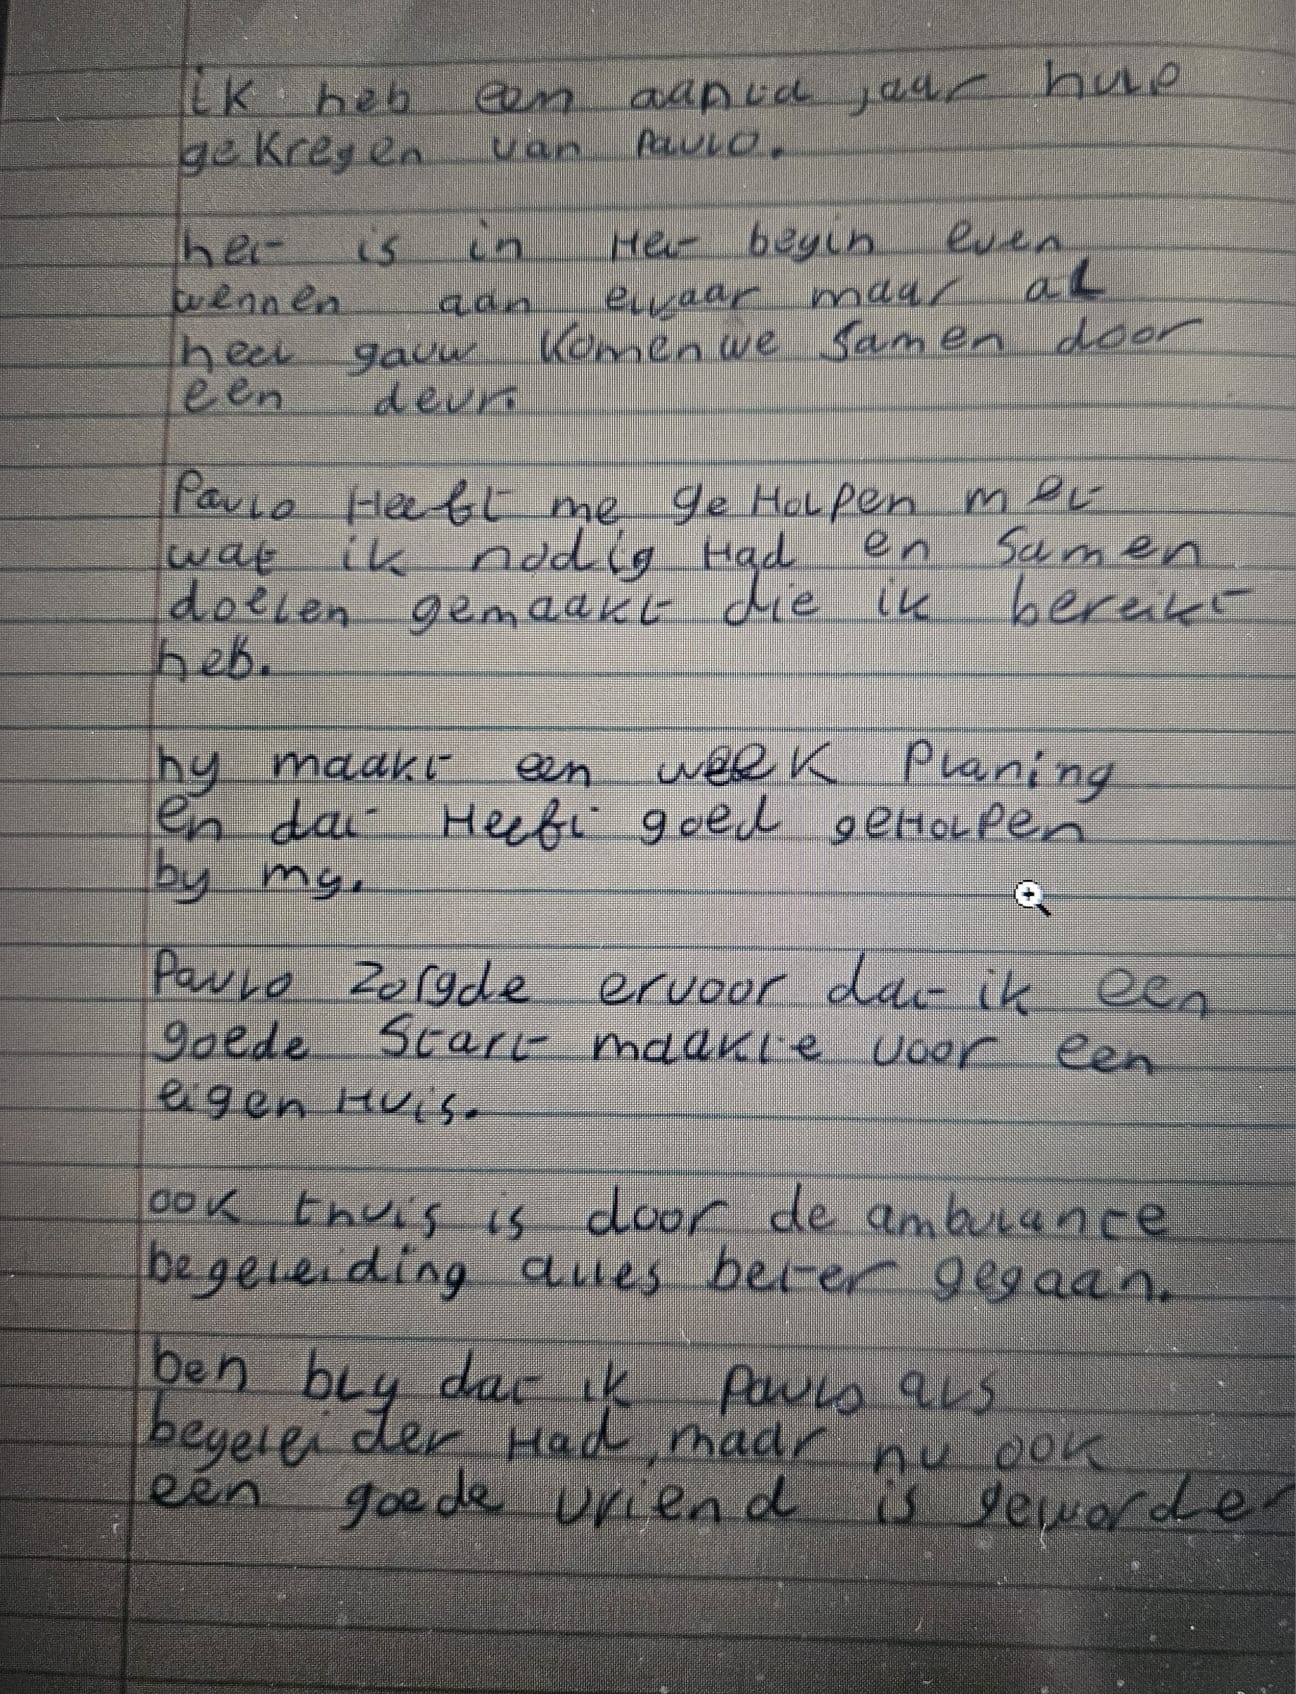 ik heb een aantal jaar hulp
gekregen van Paulo.
het is in Het begin even
wennen aan elkaar maar al
heel gauw Komen we samen door
een deur.
Paulo Heeft me geHolpen met
wat ik nodig Had en samen
doelen gemaakt die ik bereikt
heb.
hy maakt een week Planing
en dat Heeft goed geHolpen
by my.
Paulo zorgde ervoor dat ik een
goede start maakte voor een
eigen Huis.
ook thuis is door de ambulante
begeleiding alles beter gegaan.
ben bly dat ik Paulo als
begeleider Had, maar nu ook
een goede vriend is geworden